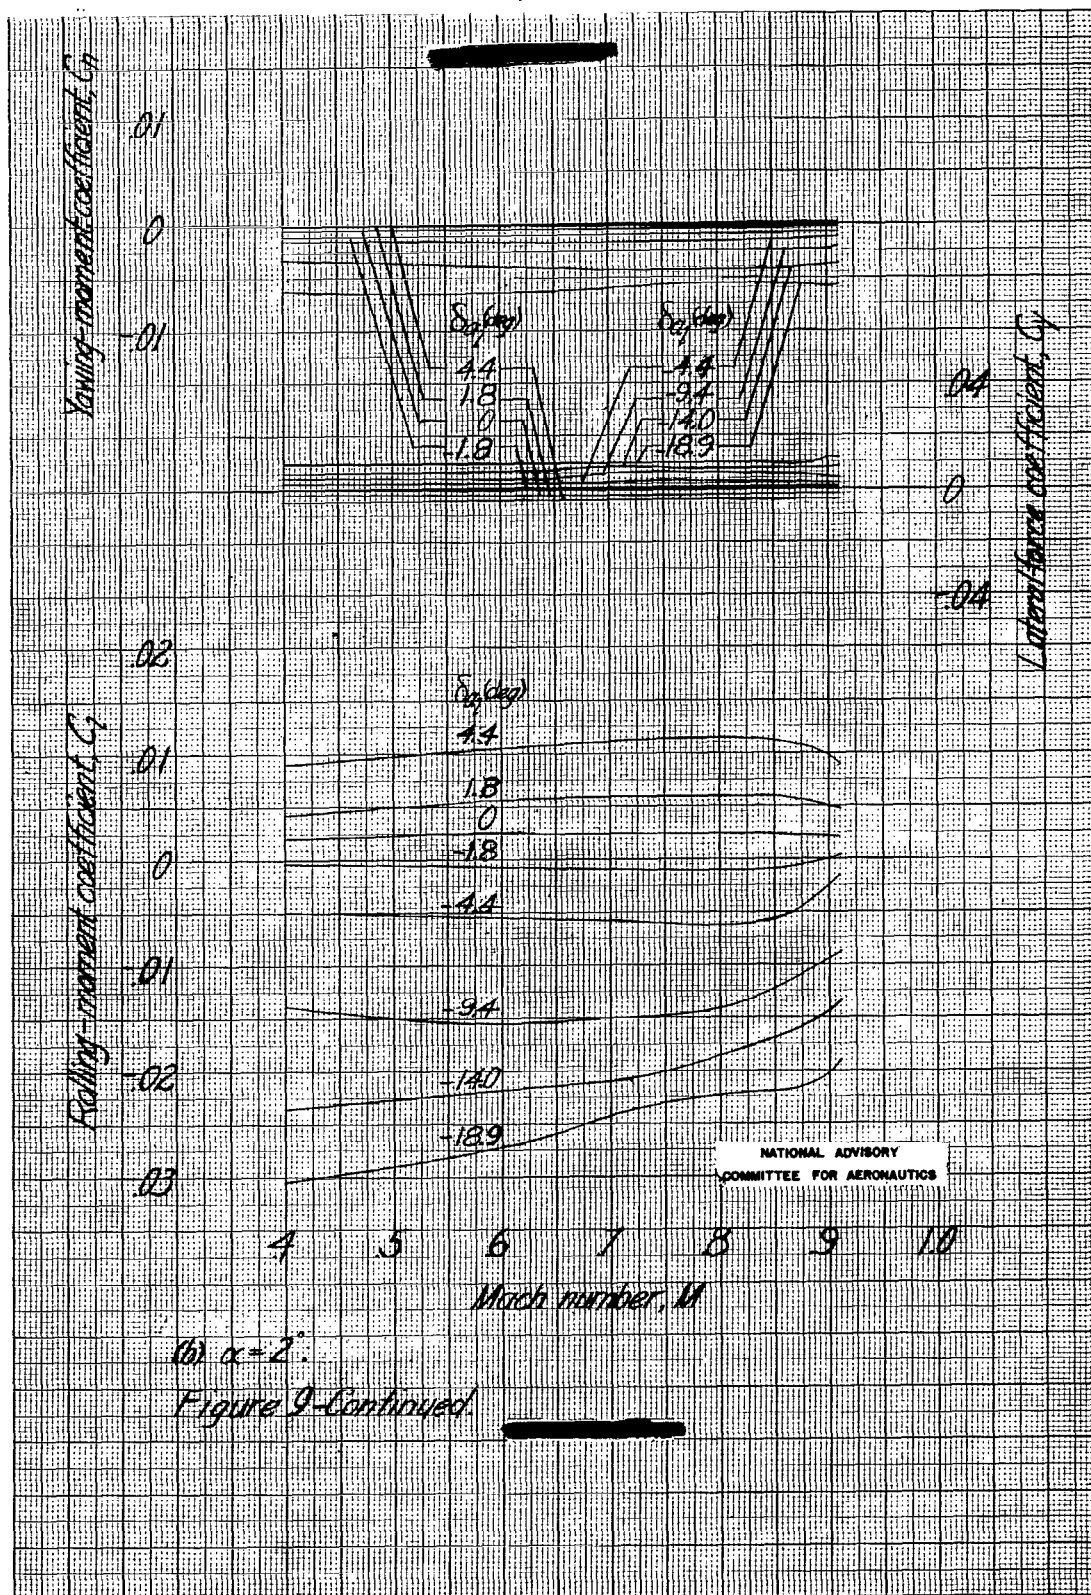 Yawing-moment coefficient, Cn
.01
0
-.01
δa,(deg)
4.4
1.8
0
-1.8
δa,(deg)
-4.4
-9.4
-14.0
-18.9
Lateral-force coefficient, Cy
.04
0
-.04
Rolling-moment coefficient, Cl
.02
.01
0
-.01
-.02
-.03
δa,(deg)
4.4
1.8
0
-1.8
-4.4
-9.4
-14.0
-18.9
NATIONAL ADVISORY
COMMITTEE FOR AERONAUTICS
.4 .5 .6 .7 .8 .9 1.0
Mach number, M
(b) α = 2°.
Figure 9-Continued.